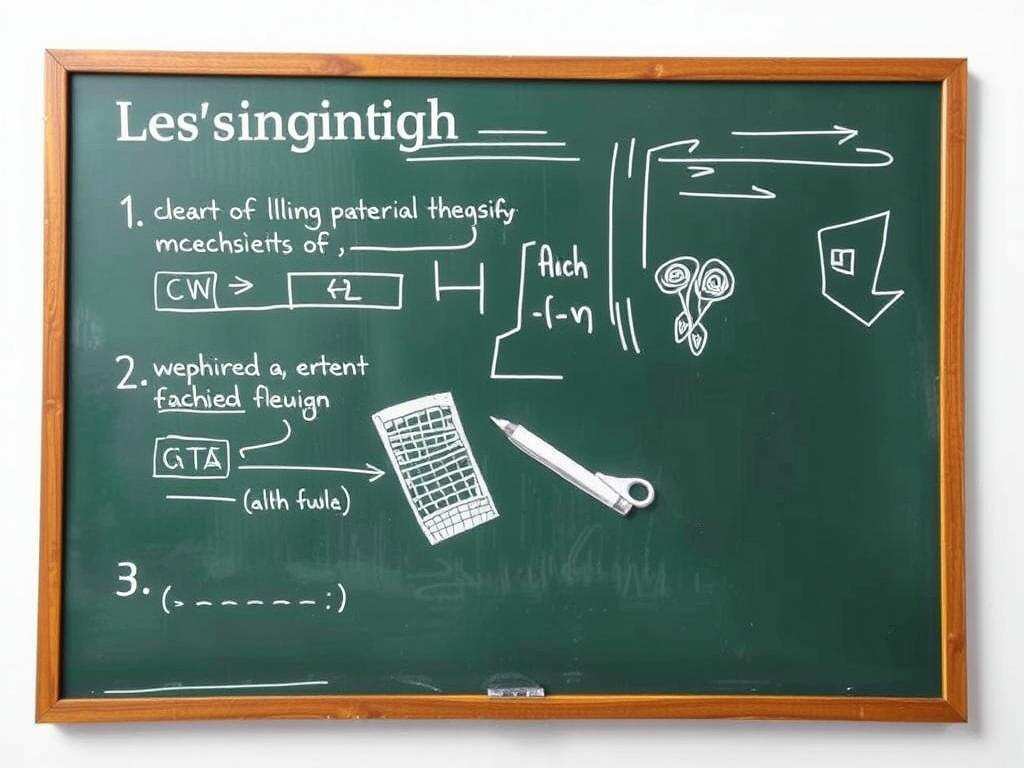 Les'singintigh
1. cleart of Illing paterial theqsify
mcechsietts of ,
CW → 42
Aich
-(-n
2. wephired a, ertent
fachied fleuign
GTA
(alth fwle)
3. (> - - - - - - :)